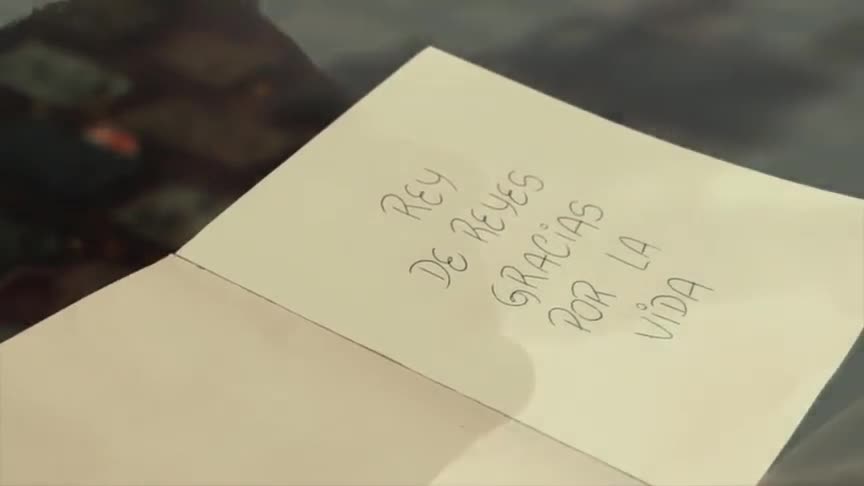 REY
DE REYES
GRACIAS
POR LA
VIDA